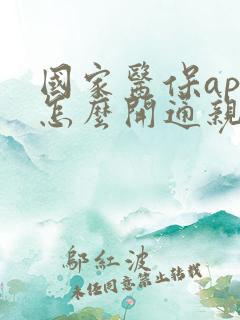 國家醫保ap
怎麼開通親
鄔紅波
未經同意禁止轉載